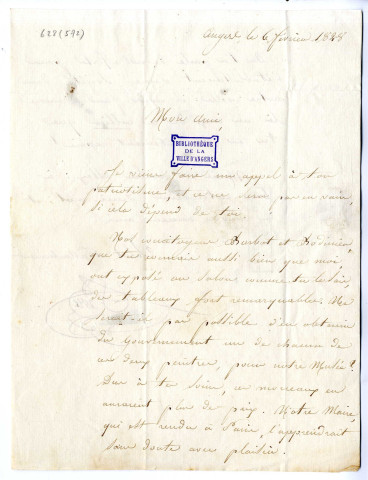 628 (592)
Angers le 6 février 1848
Mon ami,
BIBLIOTHÈQUE
DE LA
VILLE D'ANGERS
Je viens faire un appel à ton
patriotisme, et ce ne sera pas en vain,
si cela dépend de toi.
Nos concitoyens et Bodinier,
que tu connais aussi bien que moi
ont exposé au salon comme tu le sais
des tableaux fort remarquables. Ne
serait-il pas possible d'en obtenir
du gouvernement un de chacun de
ces deux peintres, pour notre Musée?
Dus à tes soins, ces morceaux en
auraient plus de prix. Notre Maire,
qui est rendu à Paris, l'apprendrait
sans doute avec plaisir.